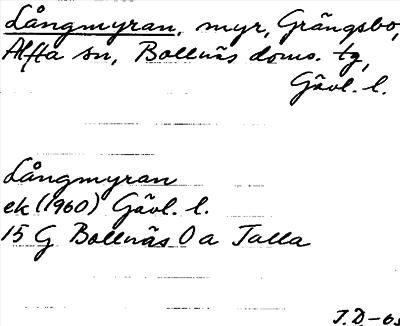 Långmyran, myr, Grängsbo,
Alfta sn, Bollnäs doms. tg,
Gävl. l.
Långmyran
ek (1960) Gävl. l.
15 G Bollnäs O a Talla
J.D-65